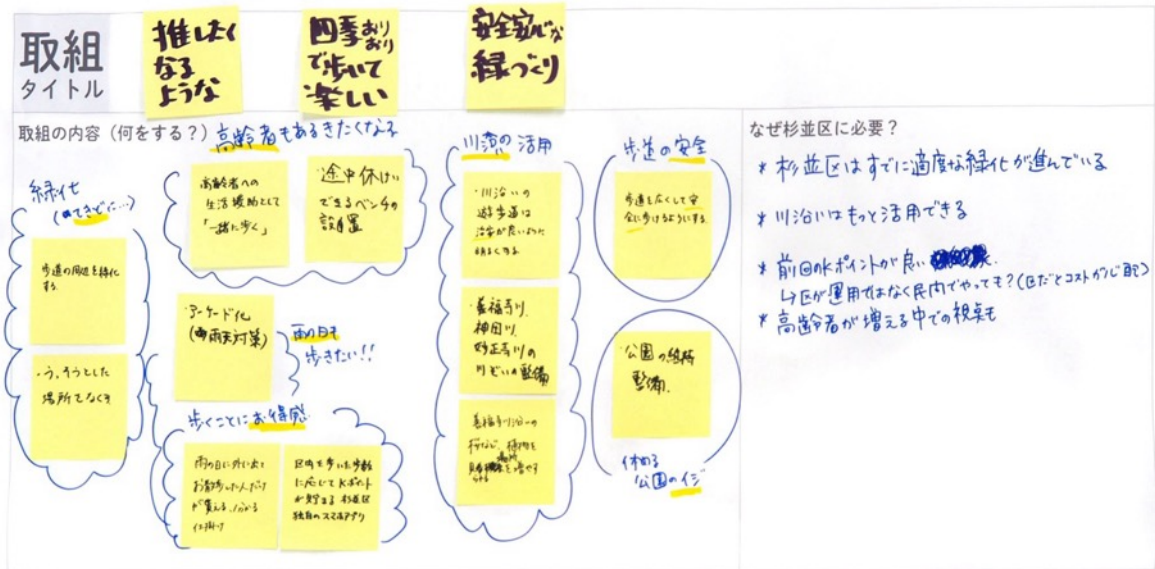 取組
タイトル
推したく
なる
ような
四季おり
おり
で歩いて
楽しい
安全安心な
緑づくり
取組の内容（何をする？）
高齢者もあるきたくなる
緑化
(てきどに…)
歩道の周辺を緑化
する
・うっそうとした
場所をなくす
高齢者への
生活援助として
「一緒に歩く」
・途中休けい
できるベンチの
設置
・アーケード化
(雨天対策)
雨の日も
歩きたい!!
歩くことにお得感
雨の日に外に出て
お散歩した人だけ
が貰える、
仕掛け
区内を歩いた歩数
に応じてkポイント
が貯まる 杉並区
独自のスマホアプリ
川沿の活用
・川沿いの
遊歩道は
治安が良いように
明るくする
・善福寺川、
神田川、
妙正寺川の
川ぞいの整備
善福寺川沿いの
桜など、植物を
場所
を増やす
歩道の安全
歩道を広くして安
全に歩けるようにする
・公園の維持
整備、
休める
公園のイジ
なぜ杉並区に必要？
* 杉並区はすでに適度な緑化が進んでいる
* 川沿いはもっと活用できる
* 前回のkポイントが良い
↳区が運用ではなく民内でやっても?(区だとコストがしんぱい)
* 高齢者が増える中での視点も